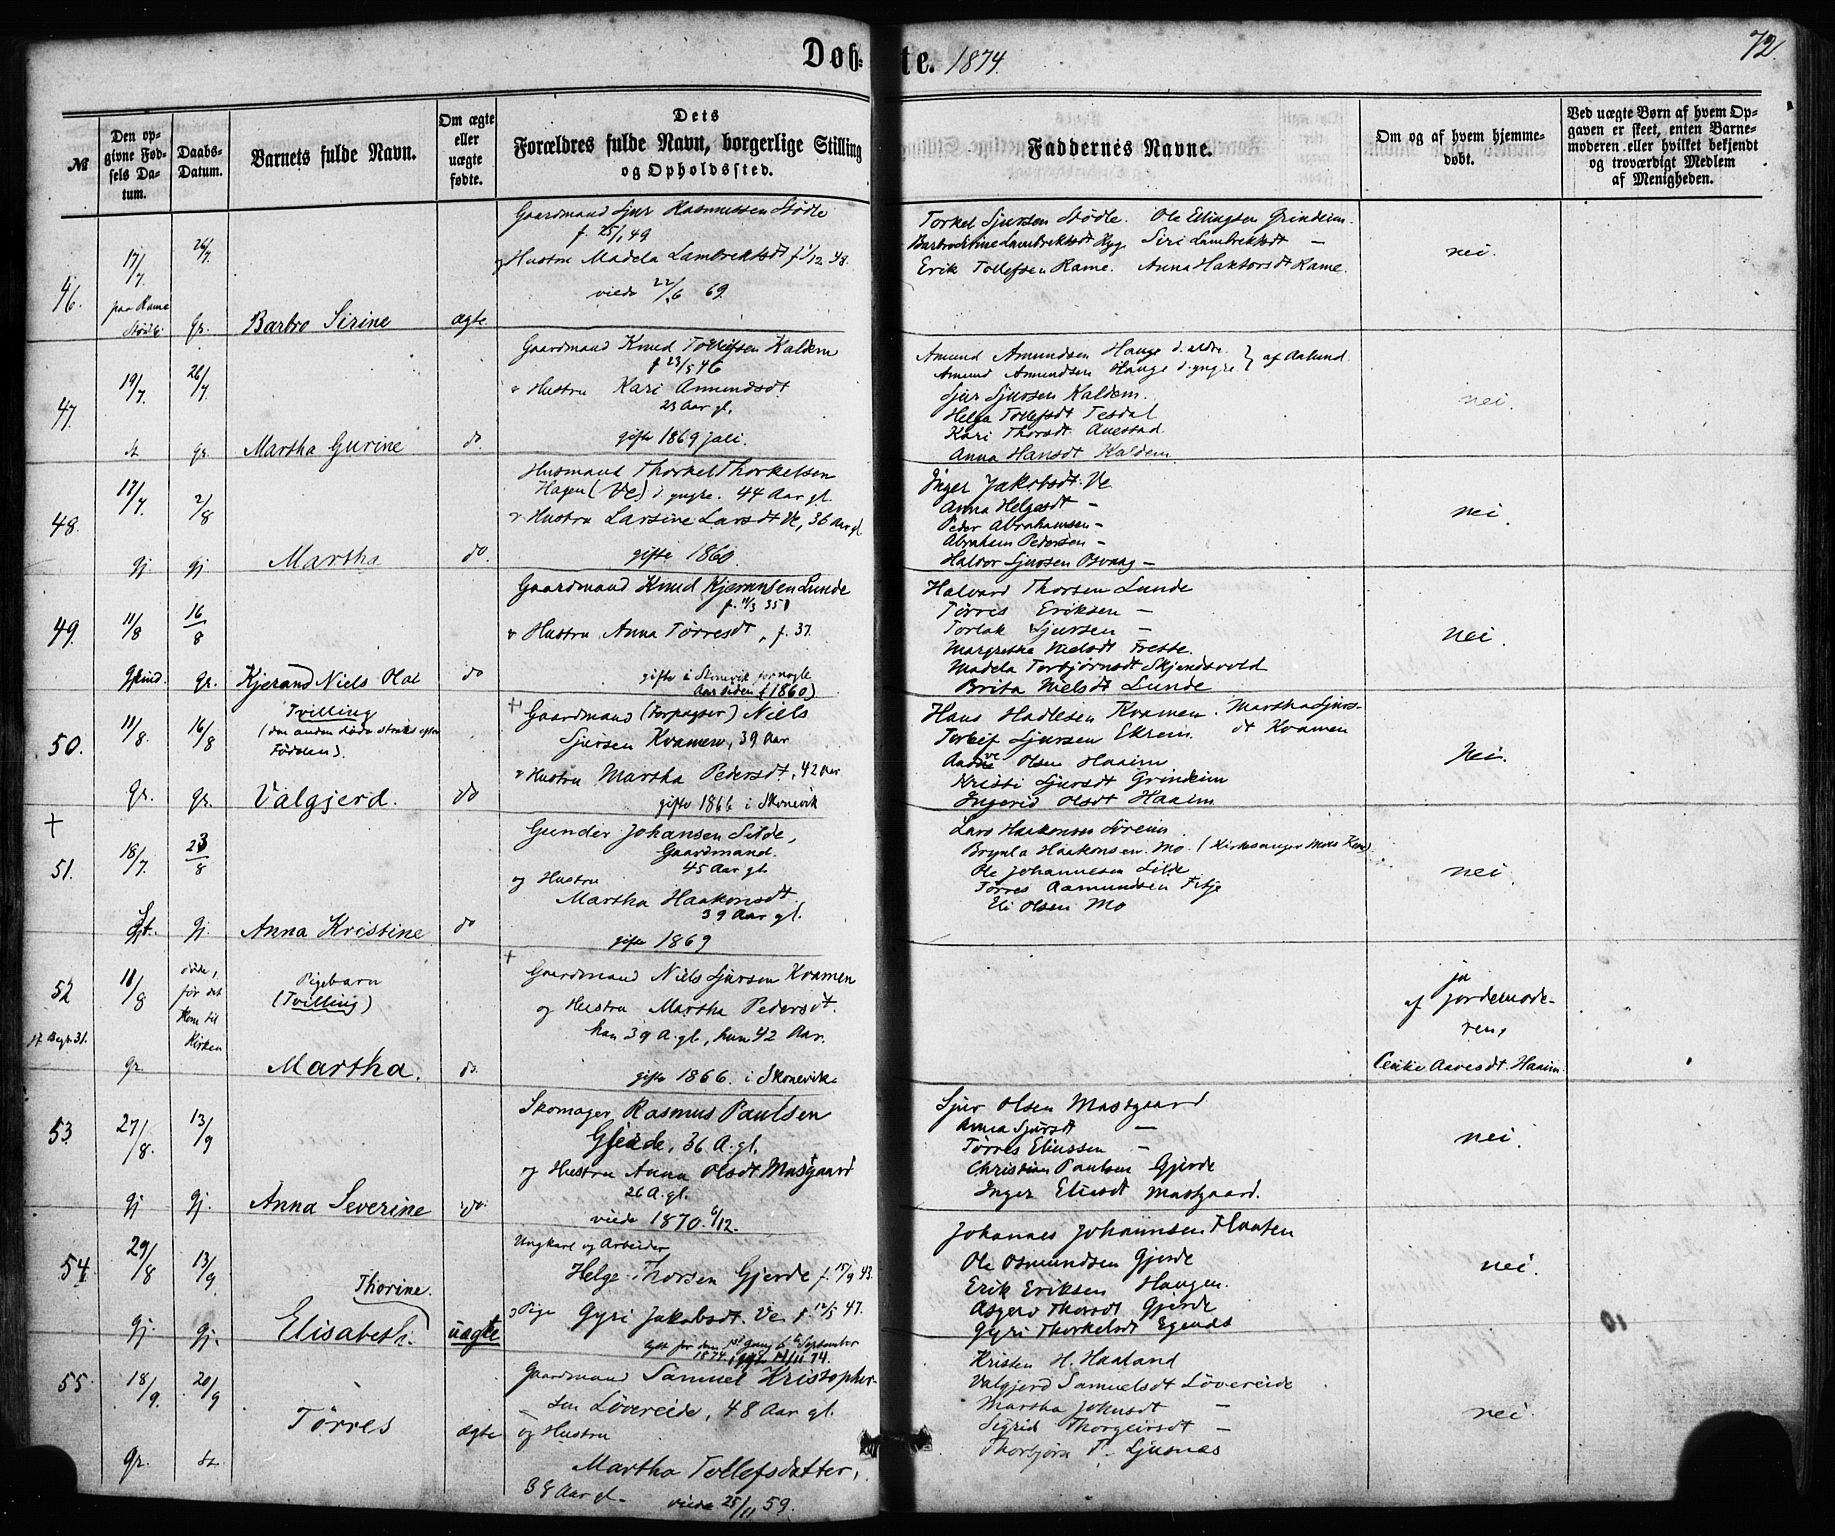 Døb-
te. 1874.
72.
№
Den op-
givne Fød-
sels Da-
tum.
Daabs-
Datum.
Barnets fulde Navn.
Om ægte
eller
uægte
fødte.
Dets
Forældres fulde Navn, borgerlige Stilling
og Opholdssted.
Faddernes Navne.
Om og af hvem hjemme-
døbt.
Ved uægte Børn af hvem Op-
gaven er skeet, enten Barne-
moderen eller hvilket bekjendt
og troværdigt Medlem
af Menigheden.
46.
17/7.
paa Rame
Stødle
26/7.
Gr.
Barbro Sirine
ægte
Gaardmand Sjur Rasmussen Stødle
f. 25/1 49
og Hustru Madela Lambrektsdt f 1/12 48.
viede 22/6 69.
Torkel Sjursen Stødle. Ole Ellingsen Grindeim.
Barbro Stine Lambrektsdt Ryg Siri Lambrektsdt —
Erik Tollefsen Rame. Anna Haktorsdt Rame.
nei.
47.
19/7.
st
26/7.
gr.
Martha Gurine
do.
Gaardmand Knud Tollefsen Kaldem
f 23/5 46
& Hustru Kari Amundsdt
23 Aar gl.
gifte 1869 juli.
Amund Amundsen Hauge d. ældre } af Aalund
Amund Amundsen Hauge d. yngre
Sjur Sjursen Kaldem.
Helga Tollefsdt Tesdal
Kari Thorsdt Auestad
Anna Hansdt Kaldem
nei.
48.
17/7.
gj.
2/8
gj.
Martha
do.
Husmand Thorkel Thorkelsen
Hagen (Ve) d. yngre. 44 Aar gl.
& Hustru Larsine Larsdt Ve, 36 Aar gl
gifte 1860.
Inger Jakobsdt. Ve
Anna Helgesdt —
Peder Abrahamsen —
Abraham Pedersen —
Haldor Sjursen Osvaag —
nei.
49.
11/8
Grind.
16/8
gr.
Kjerand Niels Olai
do
Gaardmand Knud Kjerandsen Lunde
f. 11/3 351
& Hustru Anna Tørresdt, f. 37.
gifte i Skonevik for nogle
Aar siden (1860)
Halvard Thorsen Lunde
Tørres Eriksen —
Torlak Sjursen —
Margretha Nielsdt Frette.
Madela Torbjørnsdt Skjendsvold
Brita Nielsdt Lunde
nei.
50.
11/8.
Gr.
16/8
Gr.
Tvilling
(den anden døde straks efter
Fødslen).
Valgjerd.
do
+ Gaardmand (Forpagter) Niels
Sjursen Kvamen, 39 Aar
& Hustru Martha Pedersdt, 42 Aar
gifte 1866 i Skonevik
Hans Hadlesen Kvamen. Martha Sjurs-
Torleif Sjursen Ekrem. dt Kvamen
Aadne Olsen Haaim
Kristi Sjursdt Grindeim
Ingerid Olsdt Haaim
Nei.
+
51.
18/7.
23/8
gj.
Anna Kristine
do
Gunder Johansen Silde,
Gaardmand.
45 Aar gl.
og Hustru
Martha Haakonsdt.
39 Aar gl.
gifte 1869
Lars Haakonsen Søreim
Brynla Haakonsen Mo. (Kirksanger Mos Kone)
Ole Johannesen Silde
Tørres Aamundsen Fitje
Eli Olsen Mo
nei.
+
52
jf. Begr. 31.
11/8
gr.
døde,
før det
kom til
Kirken
Pigebarn
(Tvilling)
Martha.
do.
Gaardmand Niels Sjursen Kvamen
og Hustru Martha Pedersdt.
han 39 A. gl., hun 42 Aar.
gifte 1866. i Skonevik.
ja
af Jordemode-
ren,
Cecilie Aaresdt. Haaim
53.
27/8.
gj
13/9
gj.
Anna Severine
do.
Skomager Rasmus Paulsen
Gjerde, 36 A. gl.
og Hustru Anna Olsdt Masgaard
26 A. gl.
viede 1870. 6/12.
Sjur Olsen Mastgaard
Anna Sjursdt —
Tørres Eliassen —
Christian Paulsen Gjerde
Inger Eliasdt Mastgaard.
nei.
54.
29/8
gj.
13/9.
gj.
Thorine.
Elisabeth.
uægte
Ungkarl og Arbeider
Helge Thorsen Gjerde f. 17/9 43.
& Pige Gyri Jakobsdt. Ve f. 12/5 47.
lyst for dem 1st Gang 6te September
1874. 11/11 74.
Johannes Johannsen Flaaten
Ole Osmundsen Gjerde
Erik Eriksen Haugen.
Asgerd Thorsdt Gjerde
Gyri Thorkelsdt Egenæs
nei.
10
55.
18/9.
gr.
20/9
st.
Tørres
ægte
Gaardmand Samuel Kristopher-
sen Løvereide, 48 Aar gl.
og Hustru
Martha Tollefsdatter,
38 Aar gl. viede 25/11 59.
Kristen H. Haaland
Valgjerd Samuelsdt Løvereide
Martha Johnsdt —
Sigrid Thorgeirsdt —
Thorbjørn T. Ljusnæs
nei.